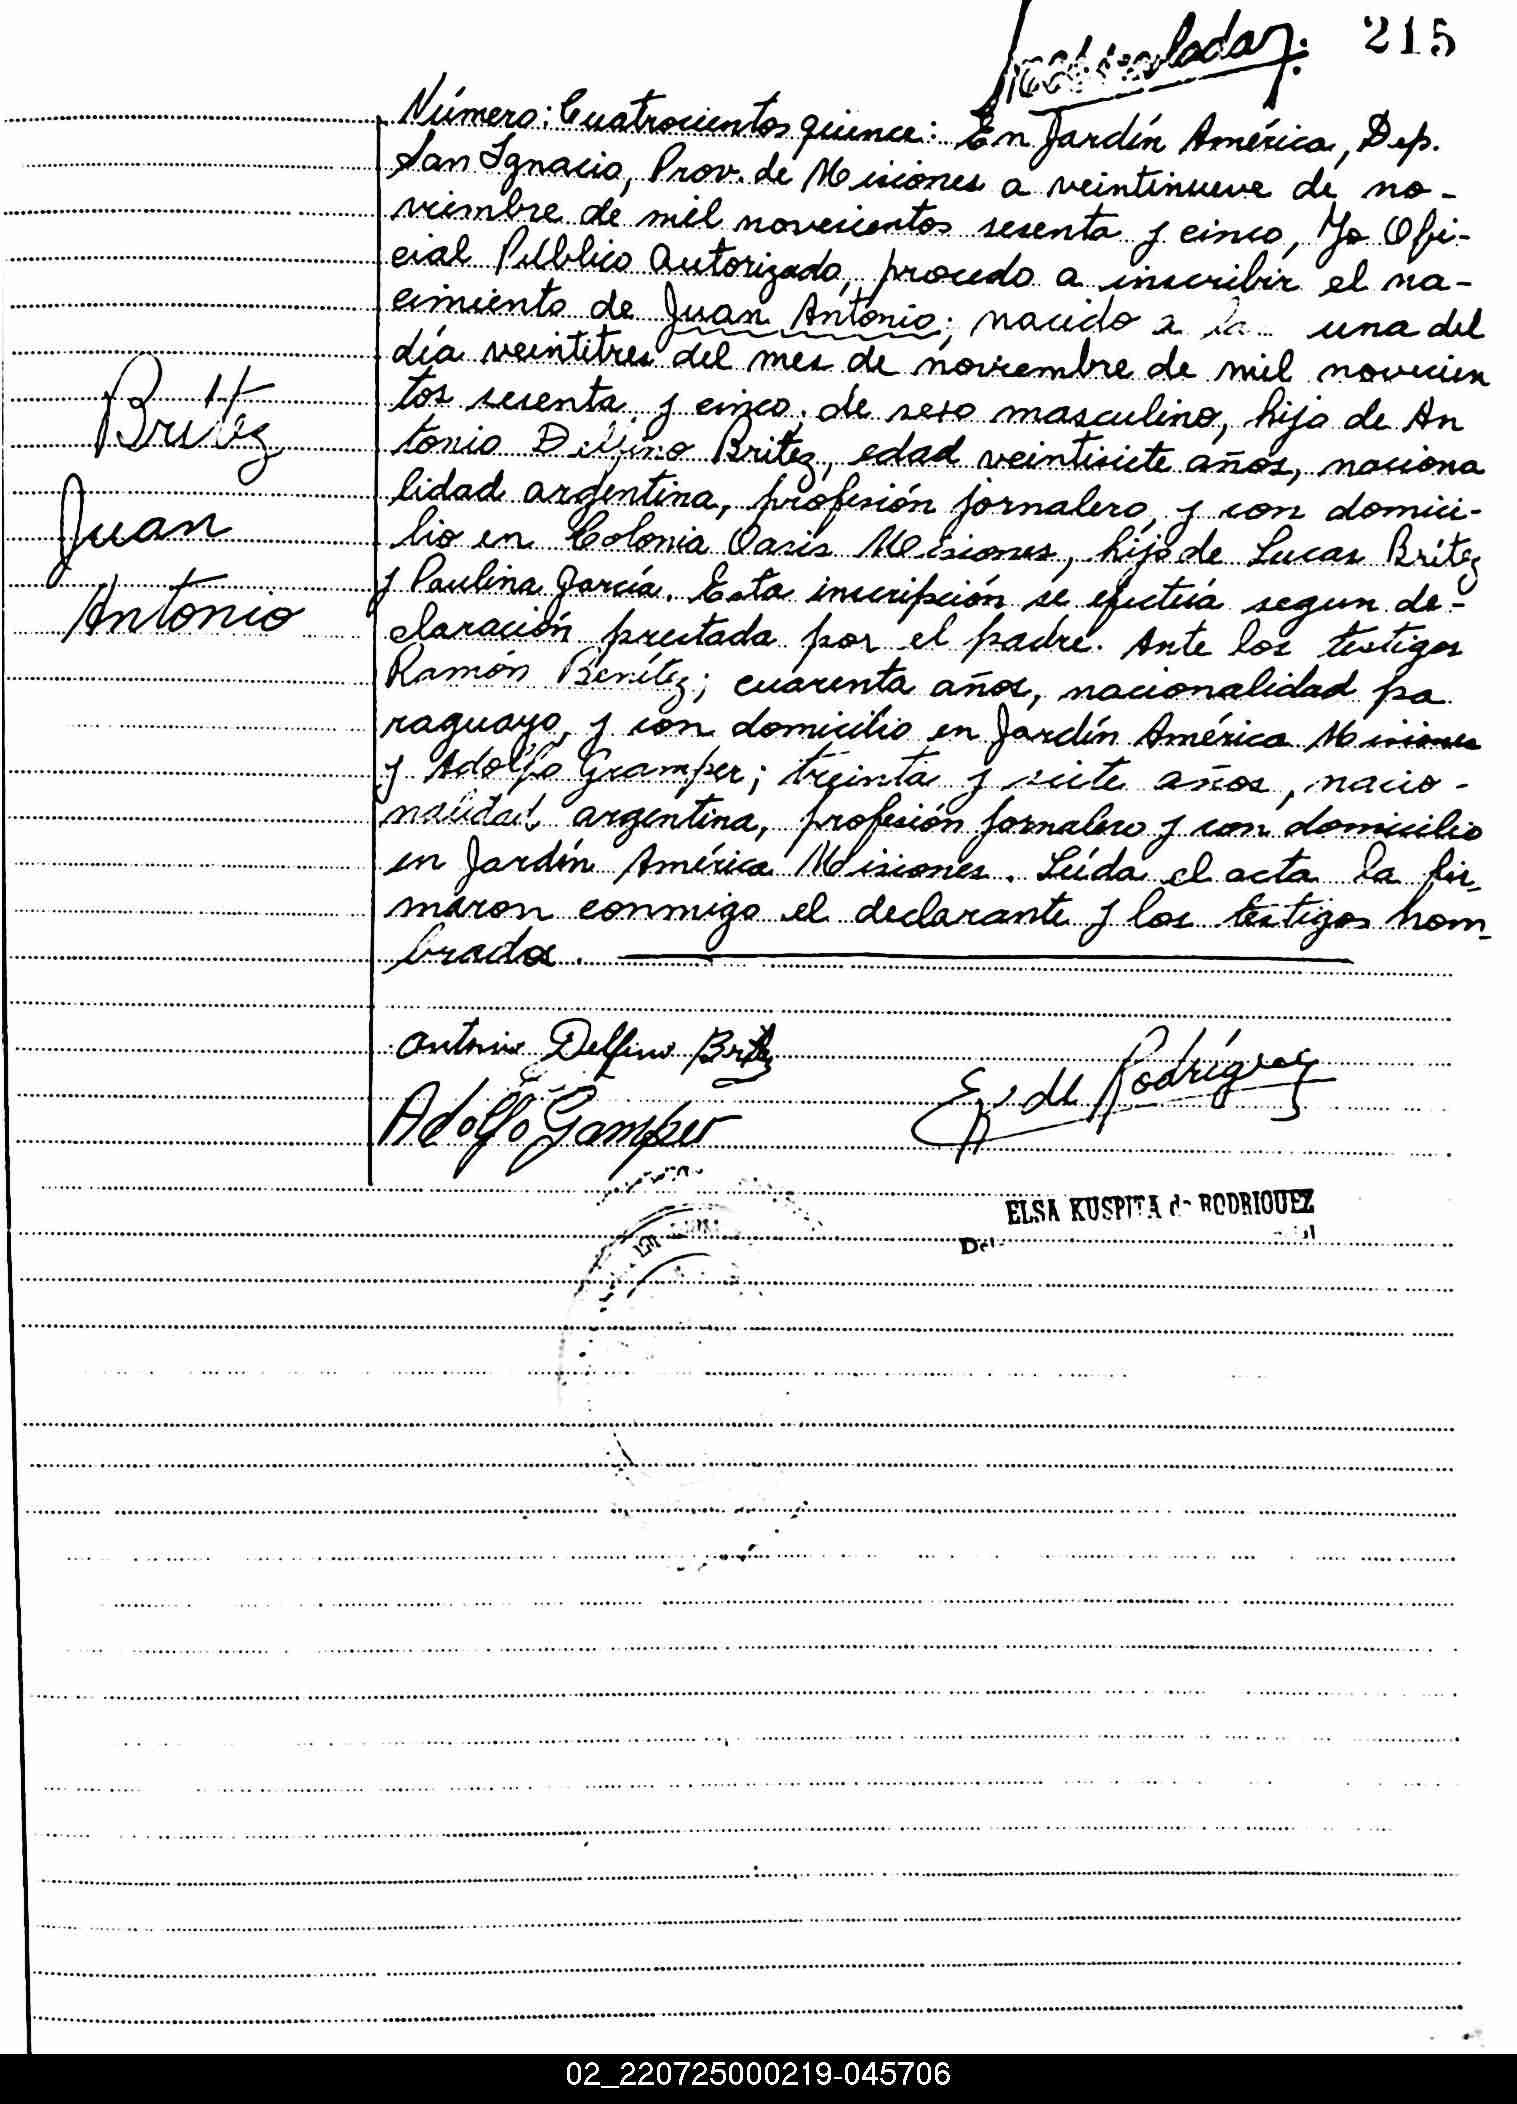 215
Número: Cuatrocientos quince: En Jardín América, Dep.
San Ignacio, Prov. de Misiones a veintinueve de no-
viembre de mil novecientos sesenta y cinco, Yo Ofi-
cial Público Autorizado, procedo a inscribir el na-
cimiento de Juan Antonio; nacido a la una del
día veintitres del mes de noviembre de mil novecien
tos sesenta y cinco, de sexo masculino, hijo de An
tonio Delfino Britez, edad veintisiete años, naciona
lidad argentina, profesión jornalero, y con domici-
lio en Colonia Oasis Misiones, hijo de Lucas Brítez
y Paulina García. Esta inscripción se efectúa segun de-
claración prestada por el padre. Ante los testigos
Ramón Benítez; cuarenta años, nacionalidad pa
raguayo, y con domicilio en Jardín América Misiones
y Adolfo Gramper; treinta y siete años, nacio-
nalidad argentina, profesión jornalero y con domicilio
en Jardín América Misiones. Leída el acta la fir-
maron conmigo el declarante y los testigos nom-
brados.
Britez
Juan
Antonio
Antonio Delfino Britez
Adolfo Gamper
E. de Rodríguez
ELSA KUSPITA de RODRIGUEZ
02_220725000219-045706